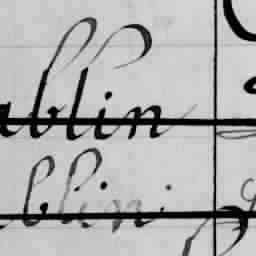 ablin
blin